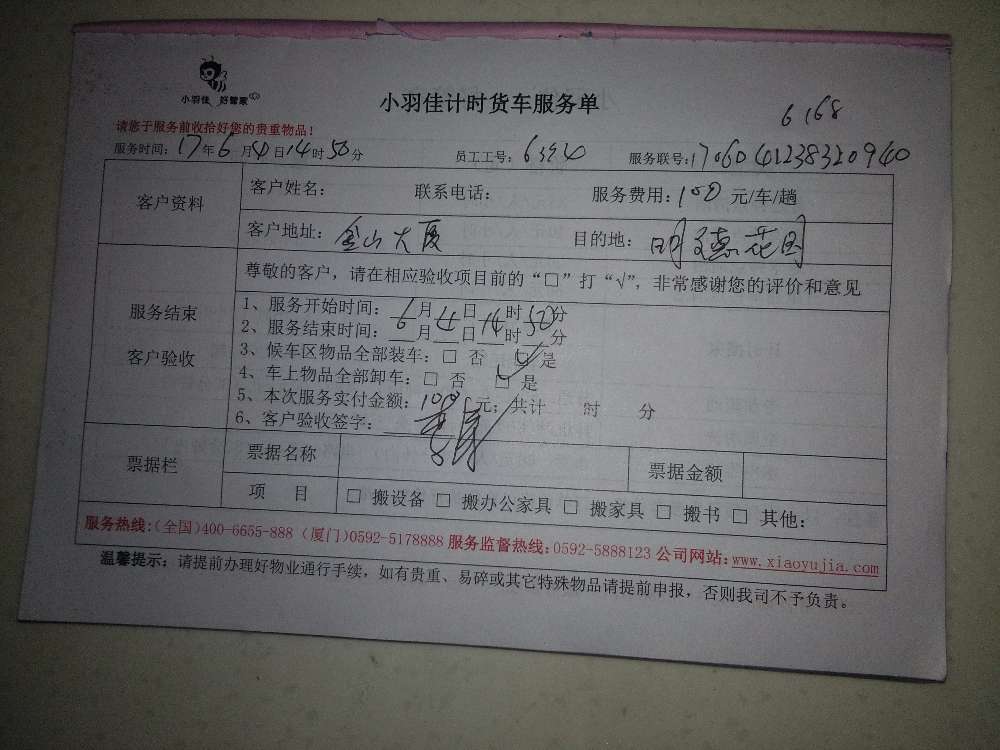 小羽佳 好管家
小羽佳计时货车服务单
6168
请您于服务前收拾好您的贵重物品！
服务时间：17年6月4日14时50分 员工工号：6394 服务联号：1706041238320940
客户资料
客户姓名： 联系电话： 服务费用：100元/车/趟
客户地址：金山大厦 目的地：明穗花园
服务结束
客户验收
尊敬的客户，请在相应验收项目前的“□”打“√”，非常感谢您的评价和意见
1、服务开始时间： 月 日 时 分
2、服务结束时间：6月4日14时50分
3、候车区物品全部装车：□ 否 ☑ 是
4、车上物品全部卸车：□ 否 ☑ 是
5、本次服务实付金额：100元；共计 时 分
6、客户验收签字：
票据栏
票据名称 票据金额
项 目 □ 搬设备 □ 搬办公家具 □ 搬家具 □ 搬书 □ 其他：
服务热线：（全国）400-6655-888（厦门）0592-5178888 服务监督热线：0592-5888123 公司网站：www.xiaoyujia.com
温馨提示：请提前办理好物业通行手续，如有贵重、易碎或其它特殊物品请提前申报，否则我司不予负责。